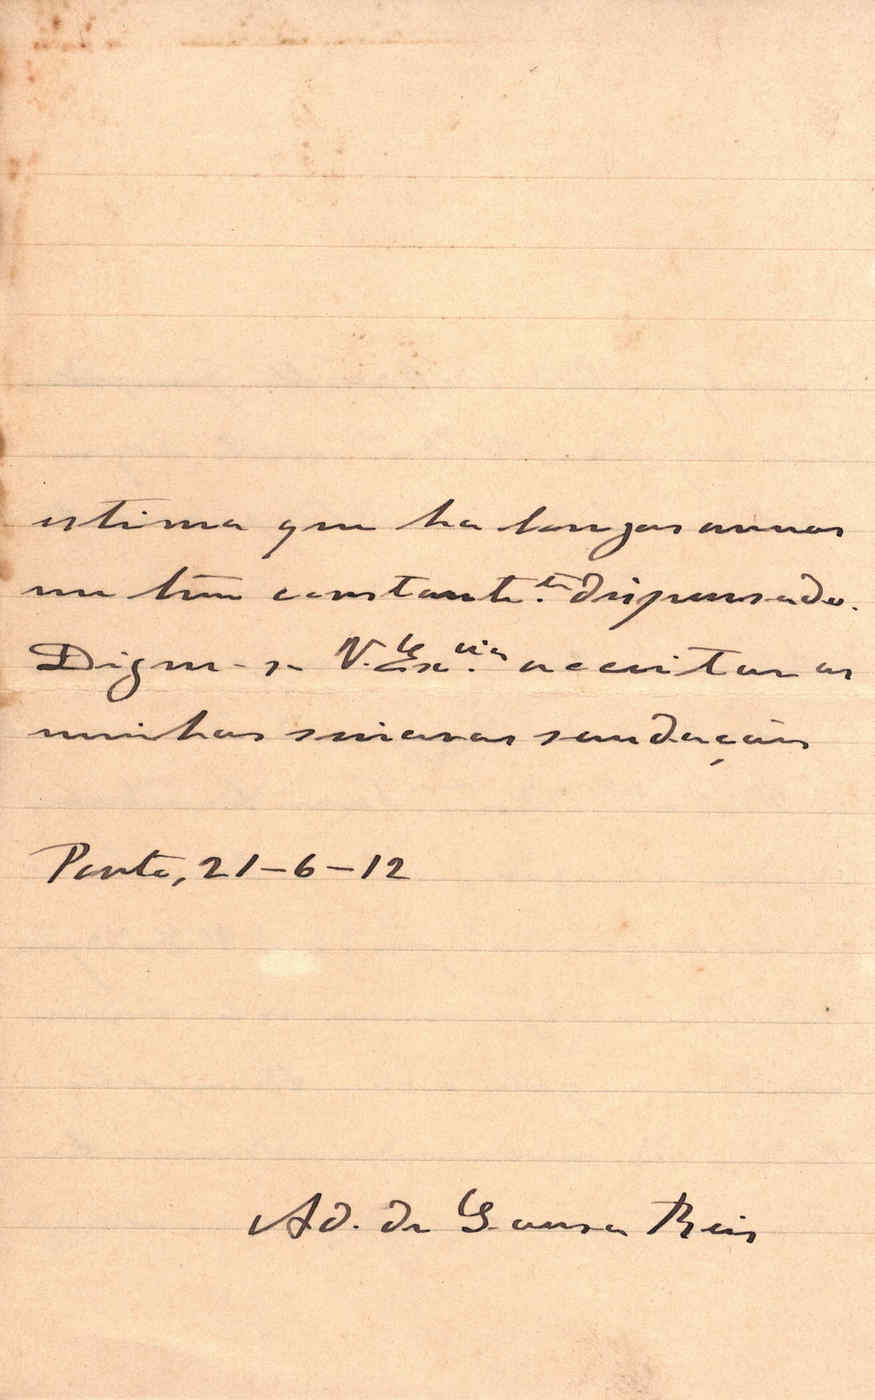 estima que ha longos annos
me tem constante.te dispensado.
Digne-se V. Ex.cia acceitar as
minhas sinceras saudações
Ponte, 21-6-12
Ad. de Sousa Reis